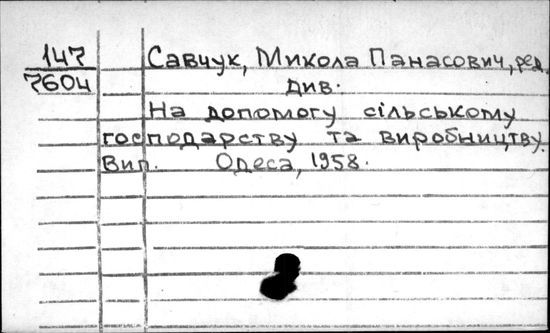 147
7604
Савчук, Микола Панасович, ред.
див.
На допомогу сільському
господарству та виробництву.
Вип. Одеса, 1958.